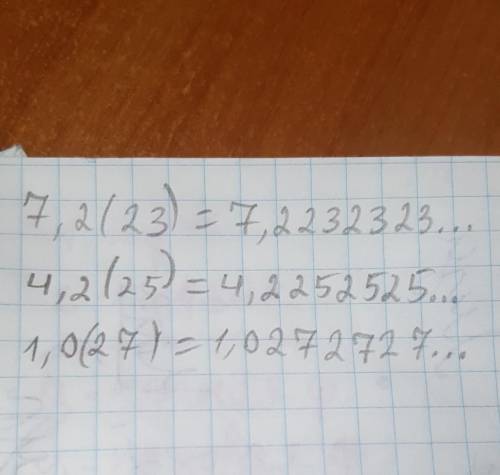 7,2(23)=7,2232323...
4,2(25)=4,2252525...
1,0(27)=1,0272727...